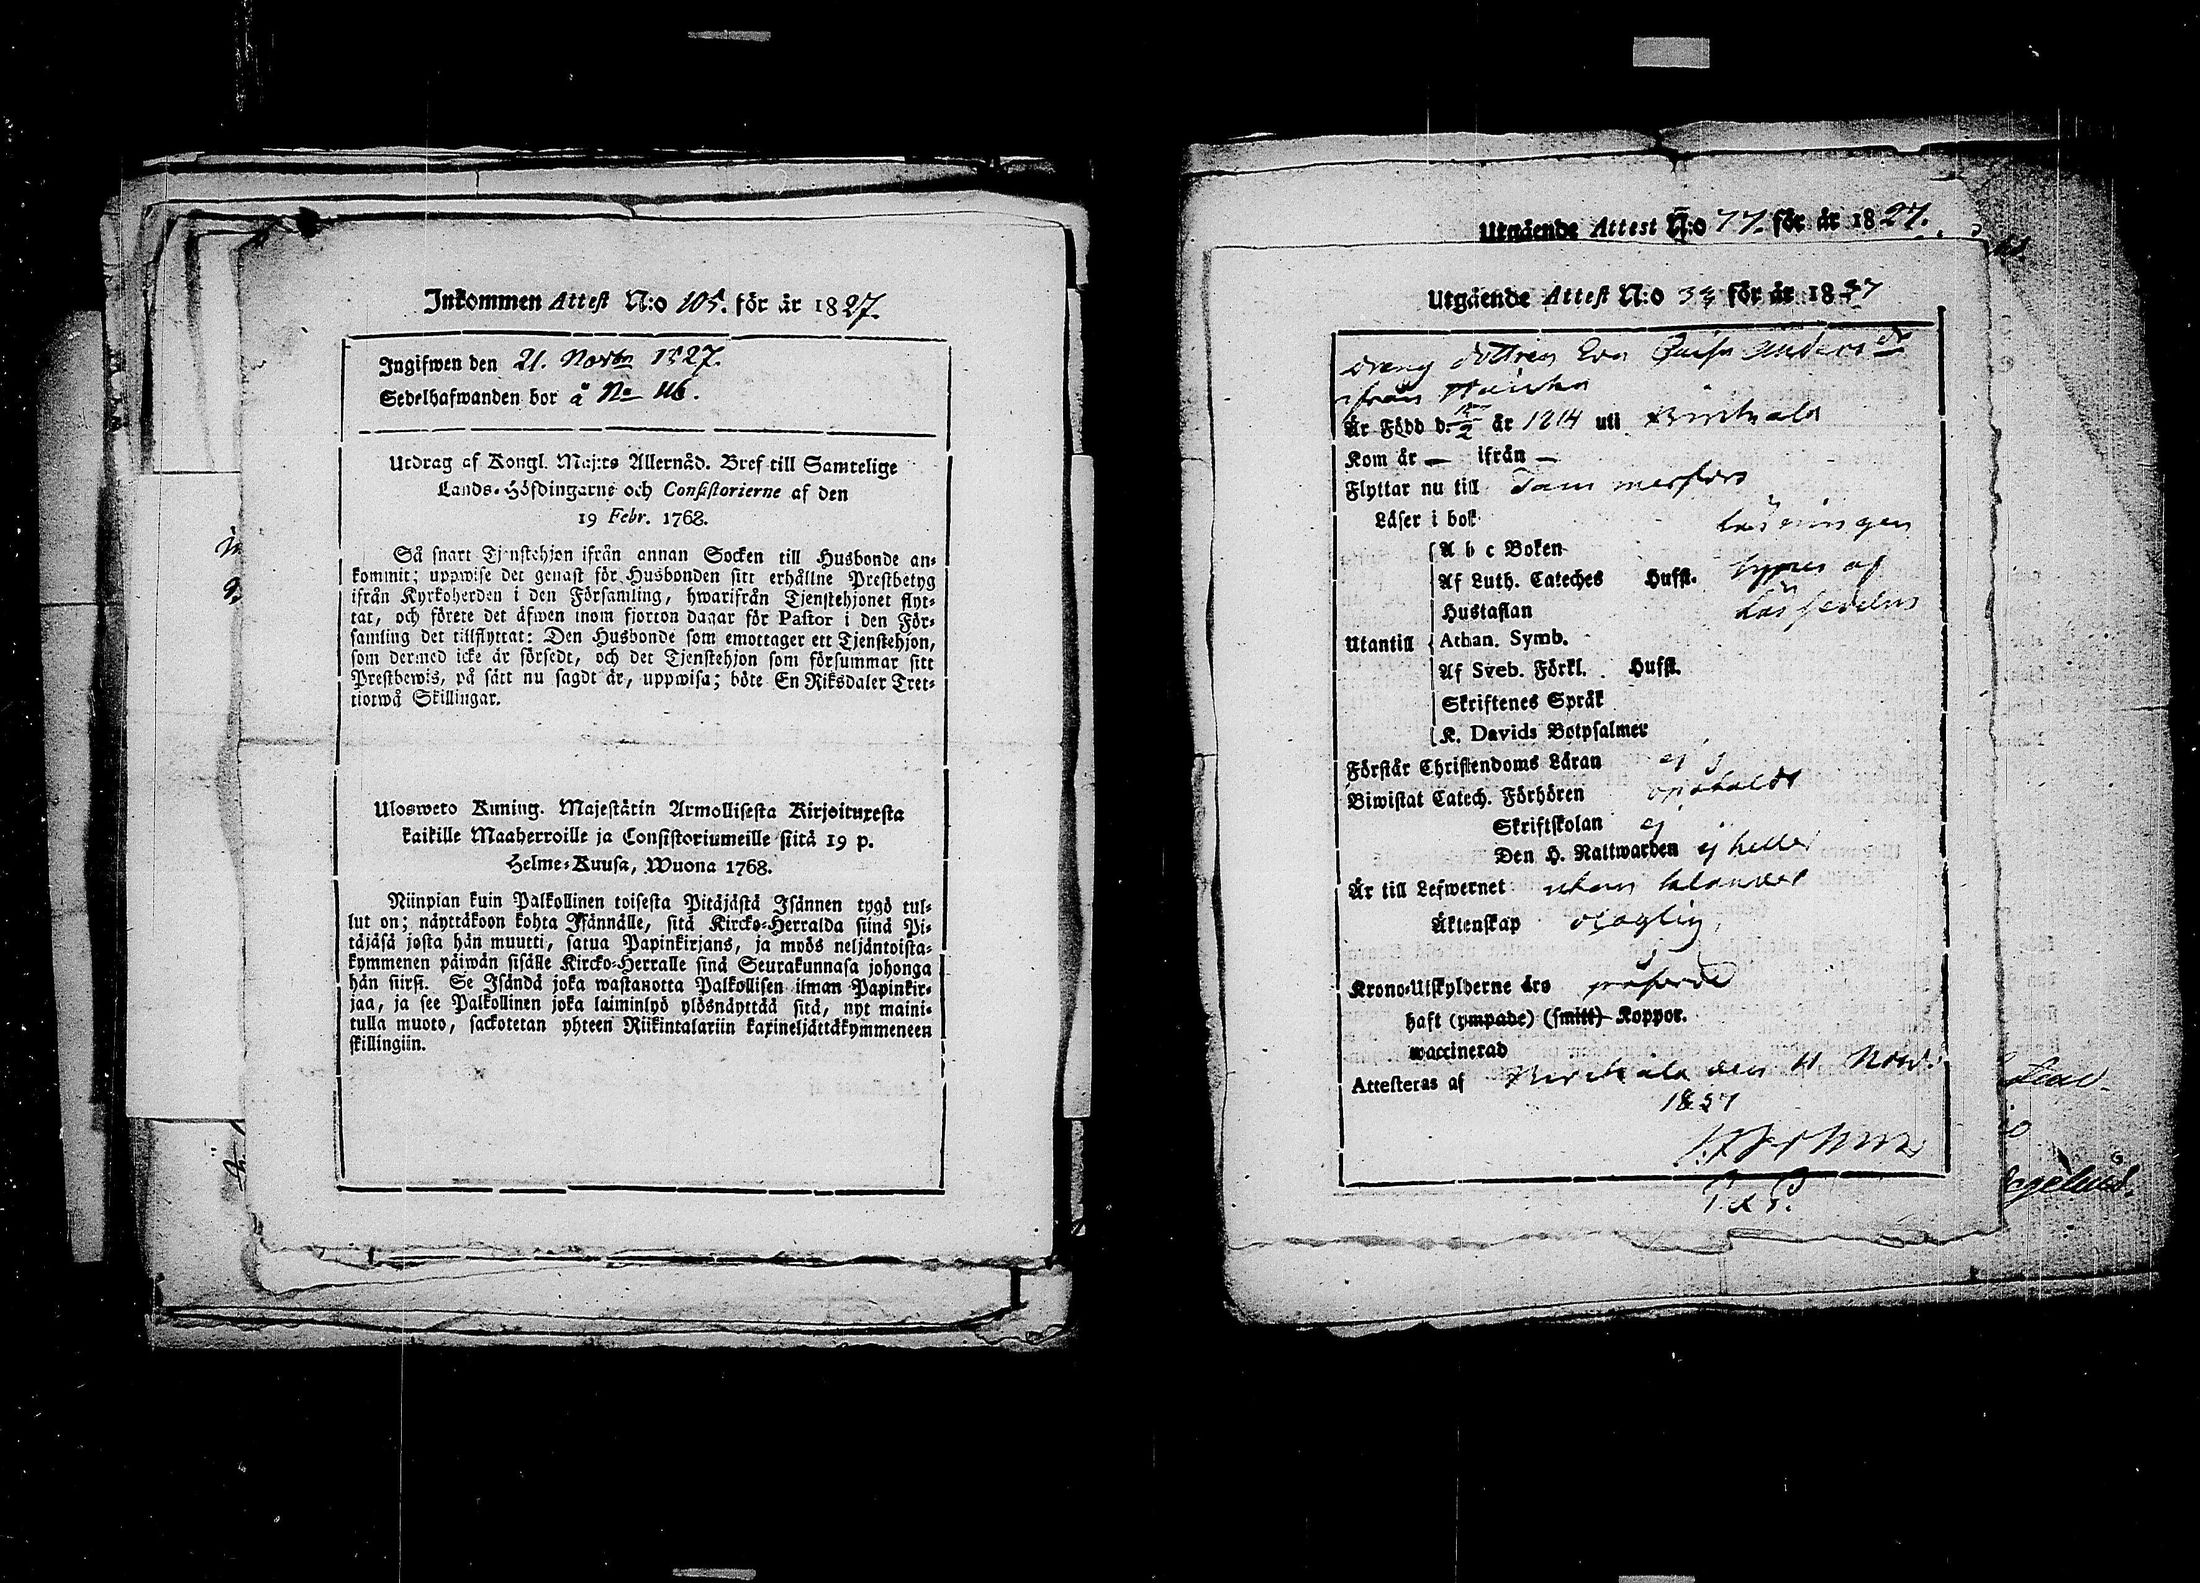 Inkommen Attest N:o 105. för år 1827.
Ingifwen den 21. Novbr 1827.
Sedelhafwanden bor å No 46.
Utdrag af Kongl. Maj:ts Allernåd. Bref till Samtelige
Lands-Höfdingarne och Consistorierne af den
19 Febr. 1768.
Så snart Tjenstehjon ifrån annan Socken till Husbonde an-
kommit; uppwise det genast för Husbonden sitt erhållne Prestbetyg
ifrån Kyrkoherden i den Församling, hwarifrån Tjenstehjonet flyt-
tat, och förete det äfwen inom fjorton dagar för Pastor i den För-
samling det tillflyttat: Den Husbonde som emottager ett Tjenstehjon,
som dermed icke är försedt, och det Tjenstehjon som försummar sitt
Prestbewis, på sätt nu sagdt är, uppwisa; böte En Riksdaler Tret-
tiotwå Skillingar.
Ulosweto Kuning. Majestätin Armollisesta Kirjoituxesta
kaikille Maaherroille ja Consistoriumeille siitä 19 p.
Helme-Kuusa, Wuona 1768.
Niinpian kuin Palkollinen toisesta Pitäjästä Isännen tygö tul-
lut on; näyttäkoon kohta Isännälle, sitä Kircko-Herralda siinä Pi-
täjäsä josta hän muutti, satua Papinkirjans, ja myös neljäntoista-
kymmenen päiwän sisälle Kircko-Herralle sinä Seurakunnasa johonga
hän siirsi. Se Isändä joka wastanotta Palkollisen ilman Papinkir-
jaa, ja see Palkollinen joka laiminlyö ylösnäyttää sitä, nyt maini-
tulla muoto, sackotetan yhteen Riikintalariin kaxineljättäkymmeneen
skillingiin.
Utgående Attest N:o 77. för år 1827.
Utgående Attest N:o 33 för år 1827
dreng dottren Eva Anders dr
från
Är Född d. /2 år 1814 uti Birkkala
Kom år — ifrån —
Flyttar nu till Tammerfors
Läser i bok läsningen
A b c Boken
Af Luth. Cateches Hufst. af
Hustaflan Läsedelns
Utantill Athan. Symb.
Af Sveb. Förkl. Hufst.
Skriftenes Språk
K. Davids Botpsalmer
Förstår Christendoms Läran ej
Biwistat Catech. Förhören
Skriftskolan ej
Den H. Nattwarden ej heller
Är till Lefwernet utan
Äktenskap olaglig
Krono-Utskylderne års påförd
haft (ympade) (smitt) Koppor.
waccinerad
Attesteras af Birkkala den 11 Nov:
1827